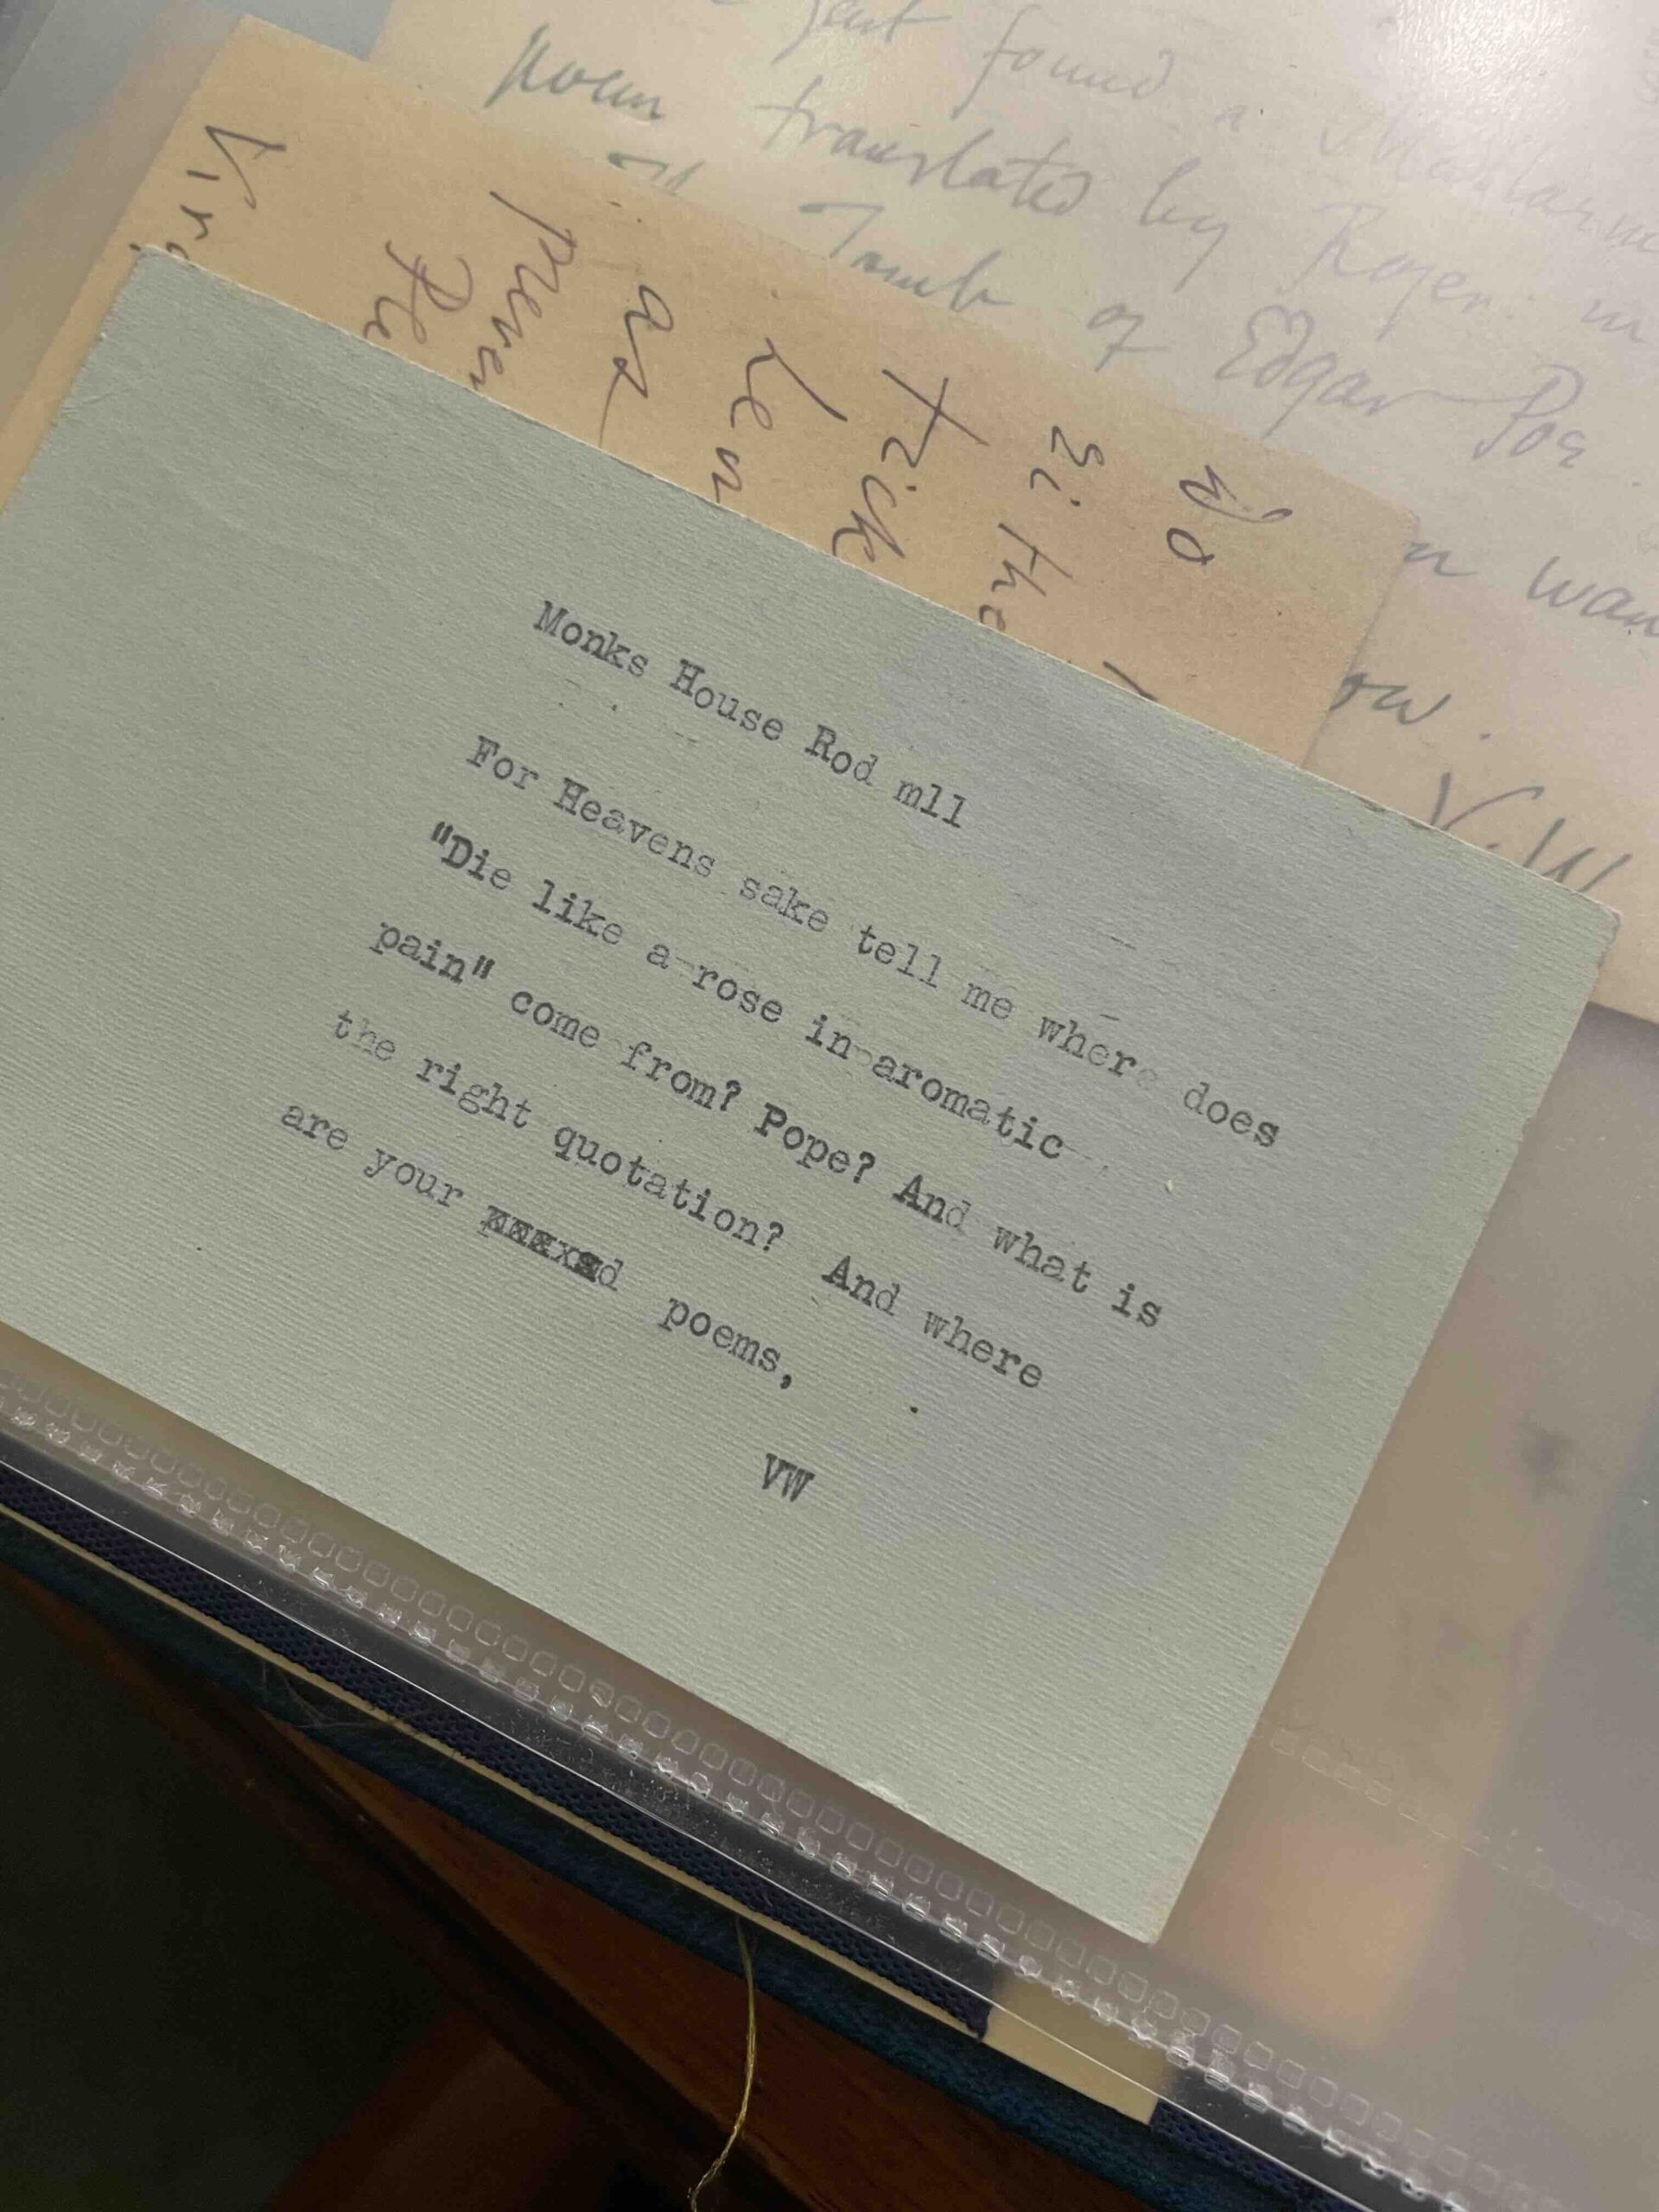 just found a Mallarm
poem translated by Roger: in
Tomb of Edgar Poe
n wan
ow.
V.W
No
Si the
trick
Len
as
preven
Ple
Virg
Monks House Rod mll
For Heavens sake tell me where does
"Die like a rose in aromatic
pain" come from? Pope? And what is
the right quotation? And where
are your poems,
VW